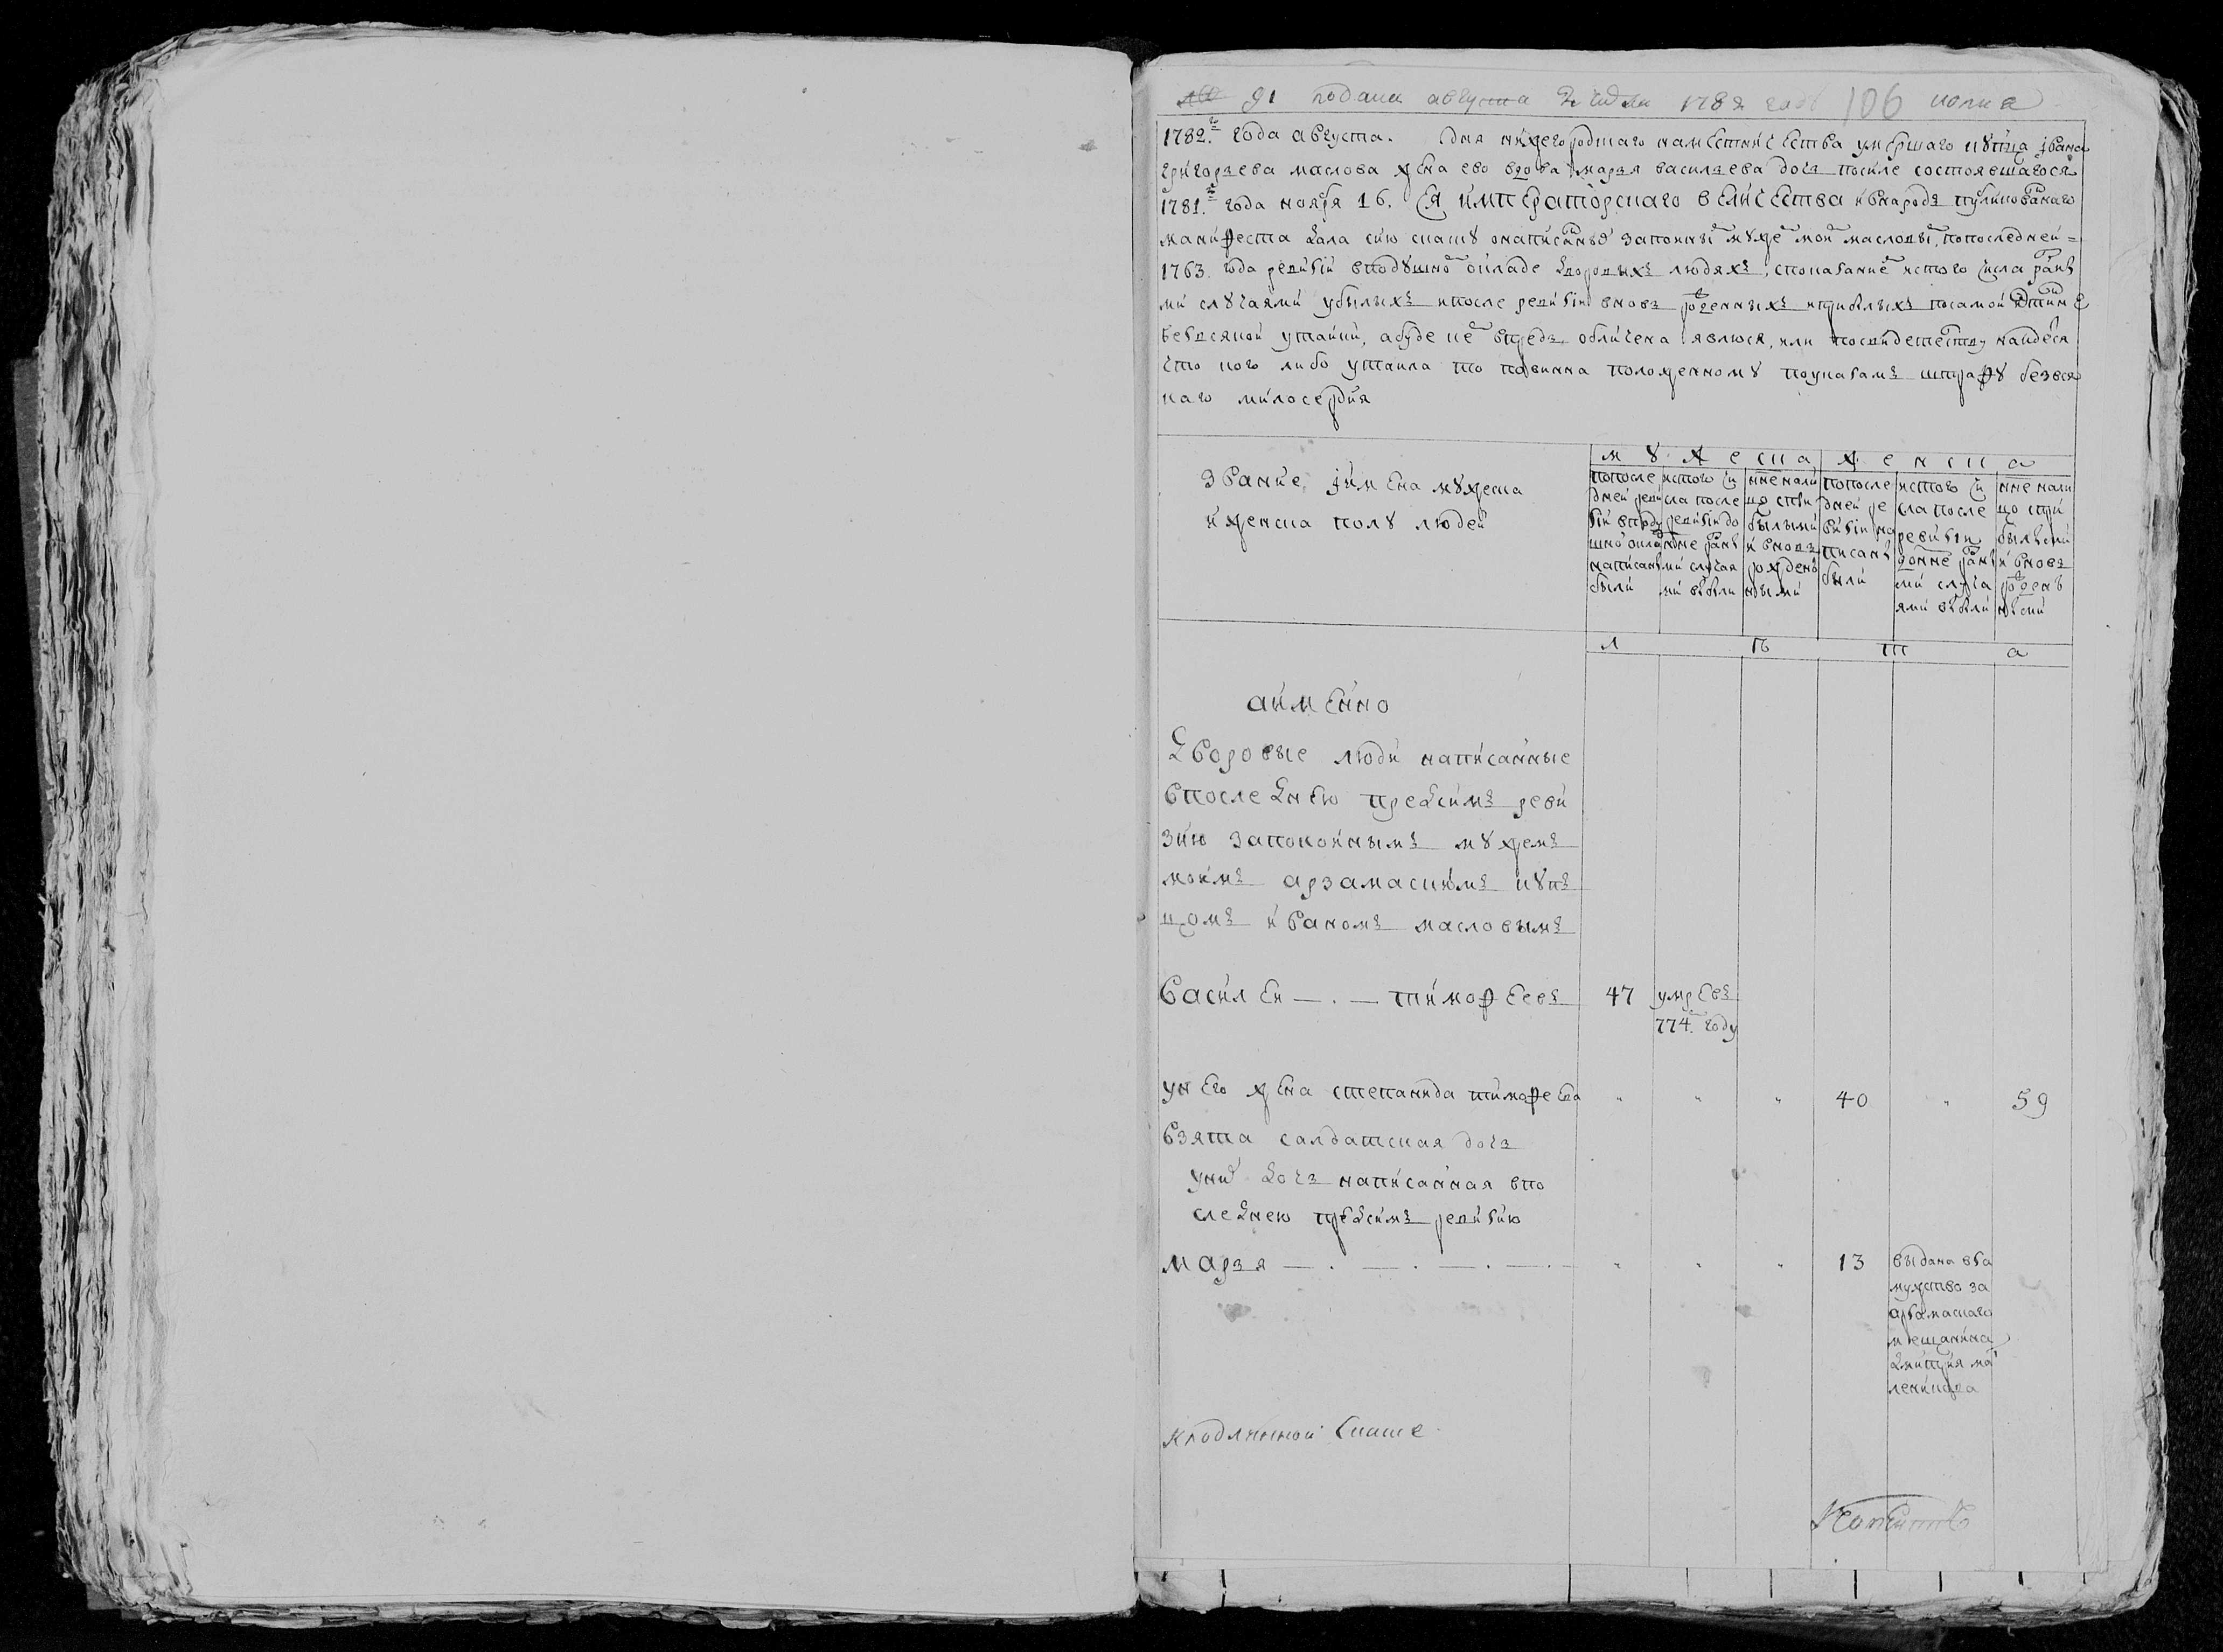 91 подана августа дня 1782 году 106 копиа
1782.го года августа. дня нижегородского наместничества умершаго купца ивана
григорьева маслова жена ево вдова марья васильева дочь после состоявшагося
1781.го года ноября 16. Ея императорскаго величества и внародъ публикованаго
манифеста дала сию скаску онаписанныхъ запокойнымъ мужемъ моимъ масловымъ, попоследней
1763. года ревизии вподушной окладе дворовыхъ людяхъ, спопазаниемъ истого числа разны
ми случаями убылыхъ ипосле ревизии вновь рожденныхъ иприбылыхъ посамой истинне
безвсякой утайки, абуде вчемъ впредь обличена явлюся, или посвидетелству найдется
что кого либо утаила то повинна положенному поуказамъ штрафу безвся
каго милосердия
звание, иимена мужеска
иженска полу людей
мужеска женска
попосле дней реви зии вподу шной окладъ написаны были
истого чи сла после ревизии до ныне разны ми случая ми выбыли
ныне нали цо спри былыми ивновь рожденны ми
попосле дней ре визии на писаны были
истого чи сла после ревизии доныне разны ми случа ями выбыли
ныне нали цо спри былыми ивновь рожденны ми
л ѣ т а
аименно
Дворовые люди написанные
впоследнею предсимъ реви
зию запокойнымъ мужемъ
моимъ арзамаскимъ куп
цомъ иваномъ масловымъ
Василей — . — тимофеевъ 47 умре въ
774.м году
унего жена степанида тимофеева " " " 40 " 59
взята салдатская дочь
унихъ дочь написанная впо
следнею предсимъ ревизию
марья — . — . — . — . — " " " 13 выдана вза
мужство за
арзамаскаго
мещанина
дмитрия ка
леникова
Кподлинной скаске